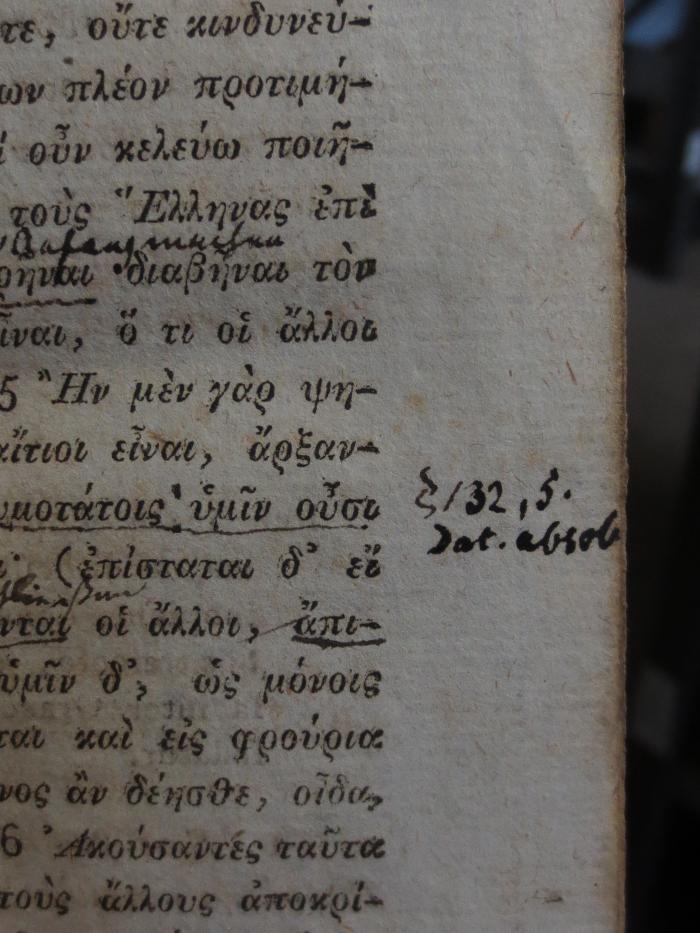 τε, οὔτε κινδυνεύ-
ων πλέον προτιμή-
οὖν κελεύω ποιῆ-
τοὺς Ἕλληνας ἐπὶ
διαβῆναι τὸν
εἶναι, ὅ τι οἱ ἄλλοι
5 Ἢν μὲν γὰρ ψη-
αἴτιοι εἶναι, ἄρξαν-
υμοτάτοις ὑμῖν οὖσι
§/32, 5.
Dat. absol
(ἐπίσταται δ' εἴ
νται οἱ ἄλλοι, ἄπι-
ὑμῖν δ', ὡς μόνοις
ται καὶ εἰς φρούρια
νος ἂν δέησθε, οἶδα,
6 Ἀκούσαντές ταῦτα
τοὺς ἄλλους ἀποκρί-